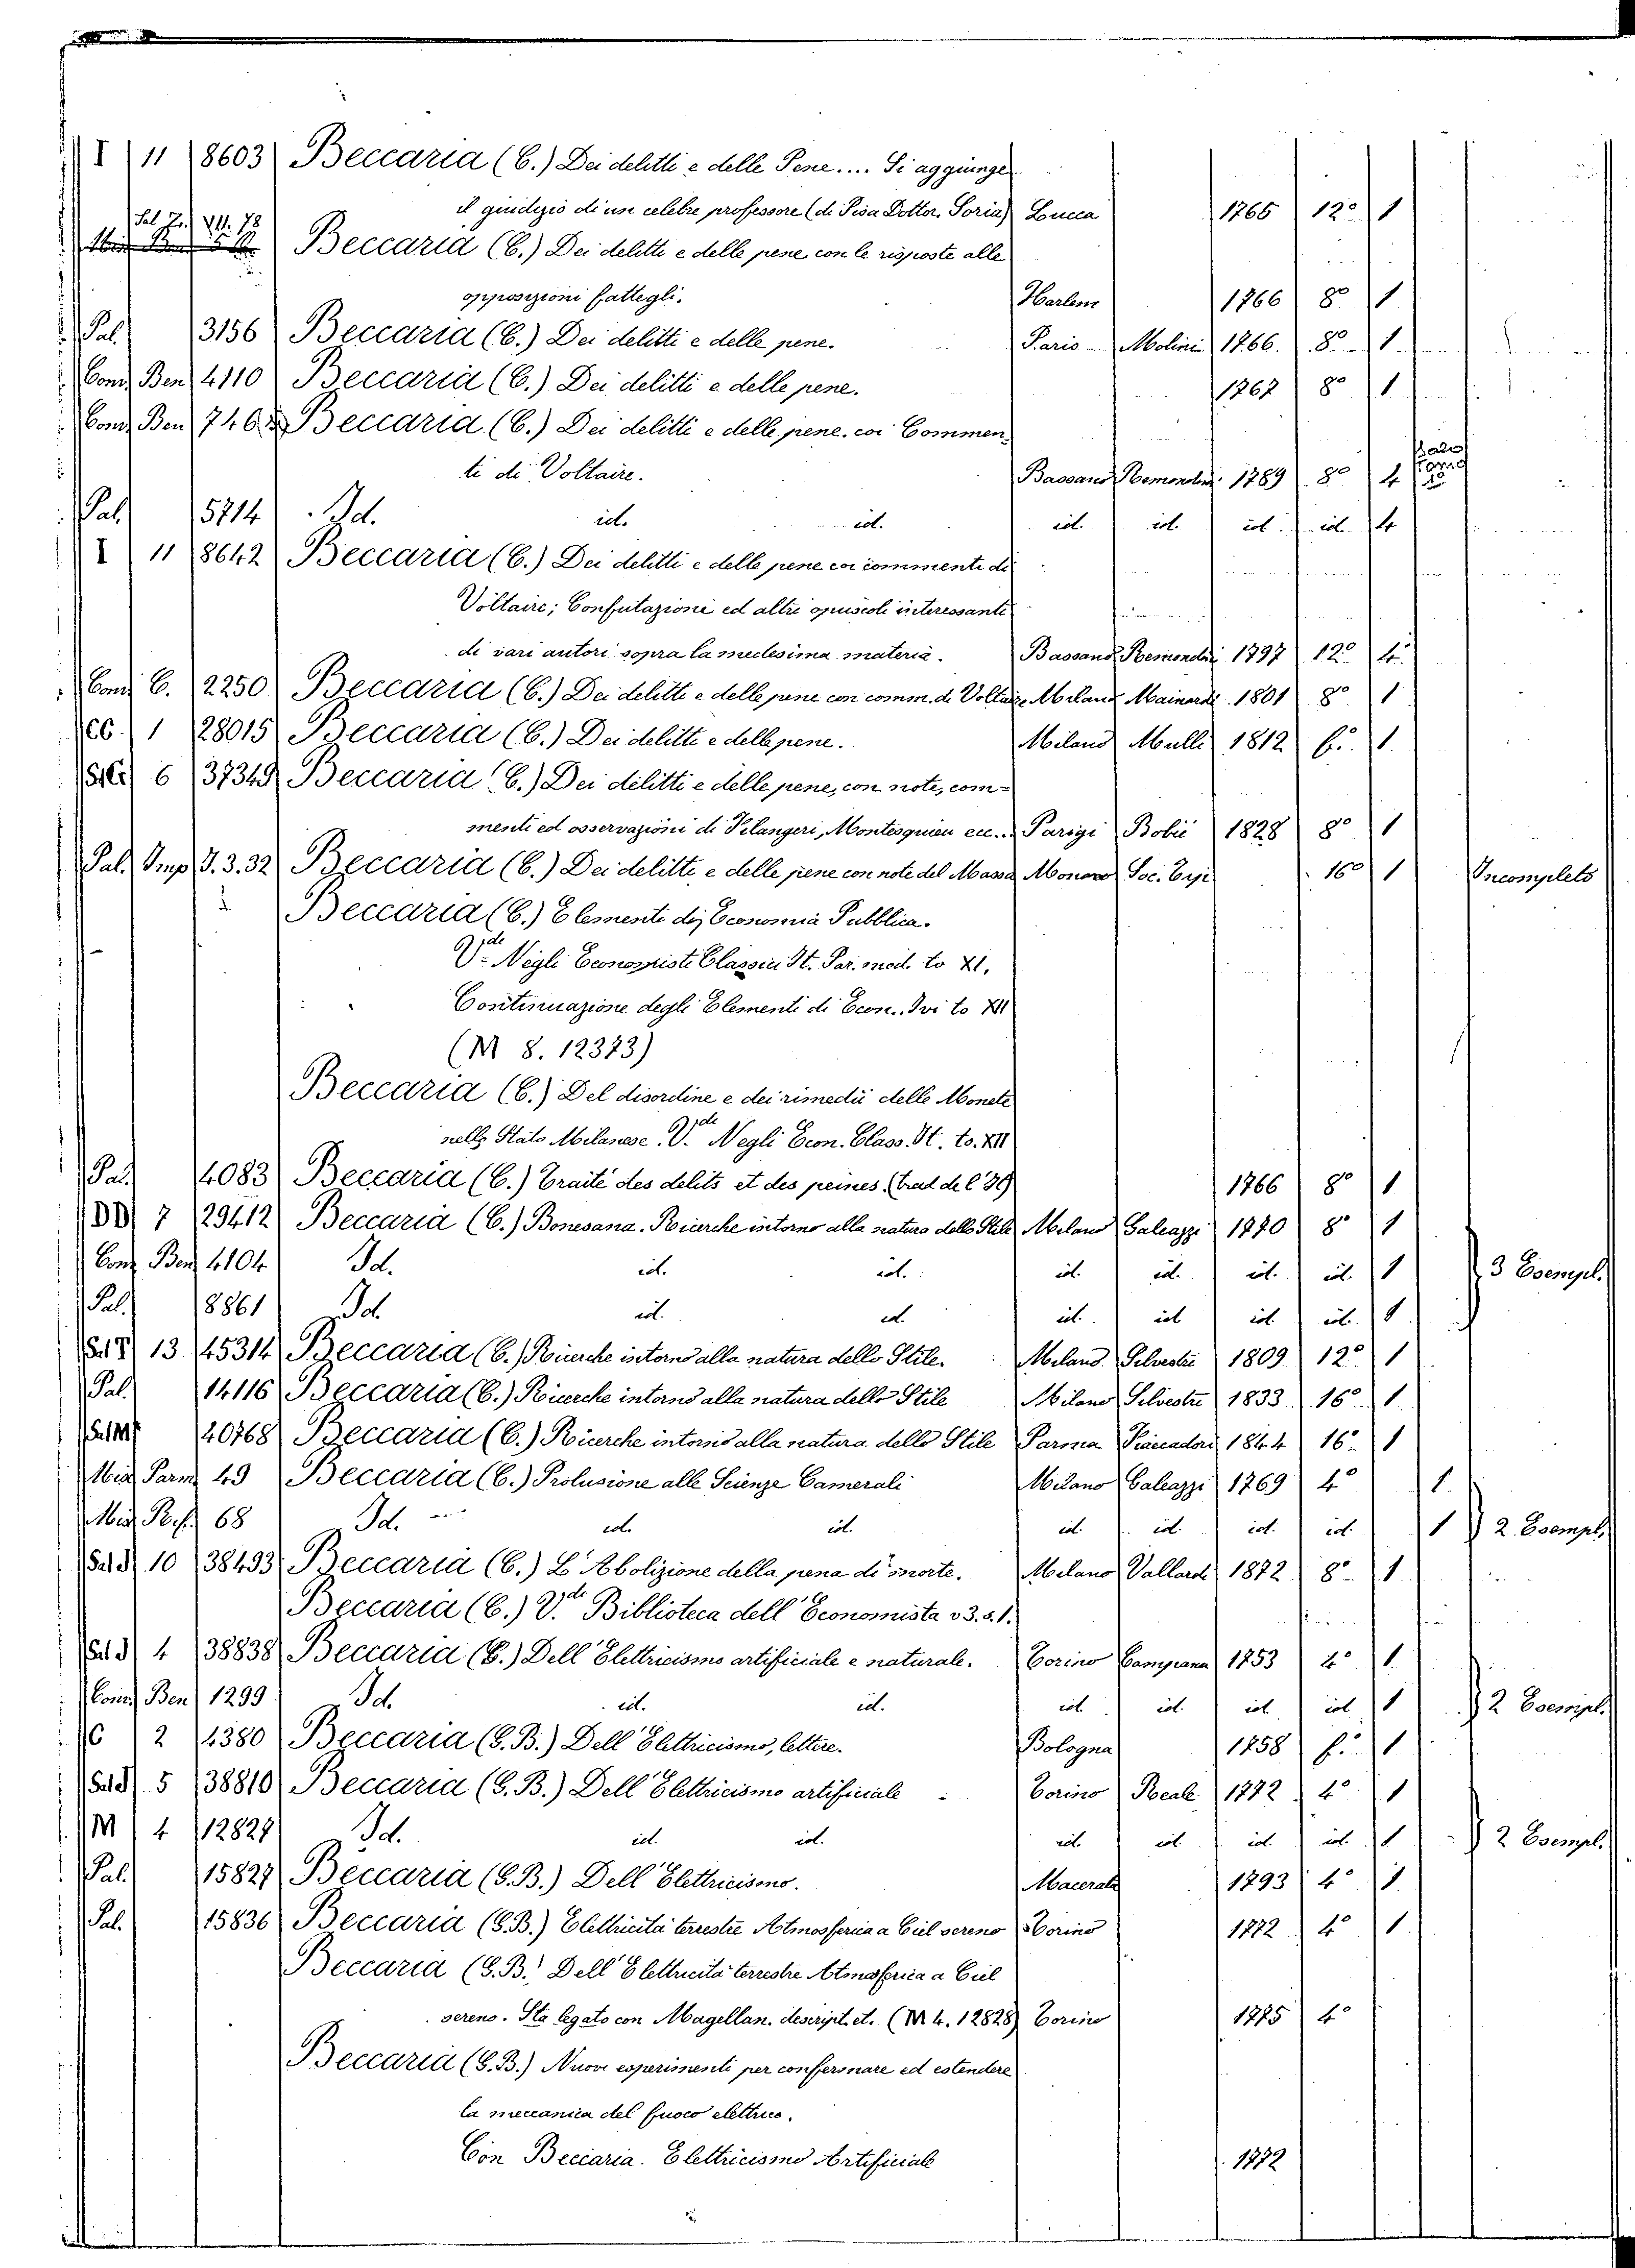 I 11 8603 Beccaria (C.) Dei delitti e delle Pene.... Si aggiunge
il giudizio di un celebre professore (di Pisa Dottor Soria) Lucca 1765 12° 1
Beccaria (C.) Dei delitti e delle pene con le risposte alle
opposizioni fattegli. Harlem 1766 8° 1
Pal. 3156 Beccaria (C.) Dei delitti e delle pene. Paris Molini 1766 8° 1
Cond. Ben 4110 Beccaria (C.) Dei delitti e delle pene. 1767 8° 1
Cond. Ben Beccaria (C.) Dei delitti e delle pene. coi Commen
ti di Voltaire. Bassano Remondini 1789 8°
Pal. 5714 Id. id. id. id. id. id. id. 4
I 11 8642 Beccaria (C.) Dei delitti e delle pene coi commenti di
Voltaire; Confutazioni ed altri opuscoli interessanti
di vari autori sopra la medesima materia. Bassano Remondini 1797 12° 4
Cond. C. 2250 Beccaria (C.) Dei delitti e delle pene con comm. di Voltaire Milano Mainardi 1801 8° 1
CC. 1 28015 Beccaria (C.) Dei delitti e delle pene. Milano Mulli 1812 f.° 1
6 37349 Beccaria (C.) Dei delitti e delle pene, con note, com=
menti ed osservazioni di Filangeri, Montesquieu ecc.. Parigi Bobié 1828 8° 1
Pal. Imp. J. 3. 32 Beccaria (C.) Dei delitti e delle pene con note del Massa Monaco Soc. Tip 16° 1 Incompleto
Beccaria (C.) Elementi di Economia Pubblica.
V.de Negli Economisti Classici It. Par. mod. to XI.
Continuazione degli Elementi di Econ.. Ivi to. XII
(M 8. 12373)
Beccaria (C.) Del disordine e dei rimedii delle Monete
nello Stato Milanese. V.de Negli Econ. Class. It. to. XII
Pal. 4083 Beccaria (C.) Traité des delits et des peines. (trad de l'It) 1766 8° 1
DD 7 29412 Beccaria (C.) Bonesana. Ricerche intorno alla natura dello Stile Milano Galeazzi 1770 8° 1
Cond. Ben 4104 Id. id. id. id. id. id. id. 1 3 Esempl.
Pal. 8861 Id. id. id. id. id. id. id. 1
13 45314 Beccaria (C.) Ricerche intorno alla natura dello Stile. Milano Silvestri 1809 12° 1
Pal. 14116 Beccaria (C.) Ricerche intorno alla natura dello Stile Milano Silvestri 1833 16° 1
40768 Beccaria (C.) Ricerche intorno alla natura dello Stile Parma Fiaccadori 1844 16° 1
Mis. Parm 49 Beccaria (C.) Prolusione alle Scienze Camerali Milano Galeazzi 1769 4° 1
Mis. 68 Id. id. id. id. id. id. id. 1 2 Esempl.
Sal J 10 38493 Beccaria (C.) L'Abolizione della pena di morte. Milano Vallardi 1872 8° 1
Beccaria (C.) V.de Biblioteca dell'Economista v 3. s. 1.
Sal J 4 38838 Beccaria (G.) Dell'Elettricismo artificiale e naturale. Torino Campana 1753 4° 1
Cond. Ben 1299 Id. id. id. id. id. id. id. 1 2 Esempl.
C 2 4380 Beccaria (G. B.) Dell'Elettricismo, lettere. Bologna 1758 f.° 1
Sal J 5 38810 Beccaria (G. B.) Dell'Elettricismo artificiale Torino Reale 1772 4° 1
M 4 12827 Id. id. id. id. id. id. id. 1 2 Esempl.
Pal. 15827 Beccaria (G. B.) Dell'Elettricismo. Macerata 1793 4° 1
Pal. 15836 Beccaria (G. B.) Elettricita terrestre Atmosferica a Ciel sereno Torino 1772 4° 1
Beccaria (G. B.) Dell'Elettricita terrestre Atmosferica a Ciel
sereno. Sta legato con Magellan. descript. et. (M 4. 12828) Torino 1775 4°
Beccaria (G. B.) Nuovi esperimenti per confermare ed estendere
la meccanica del fuoco elettrico.
Con Beccaria. Elettricismo Artificiale 1772